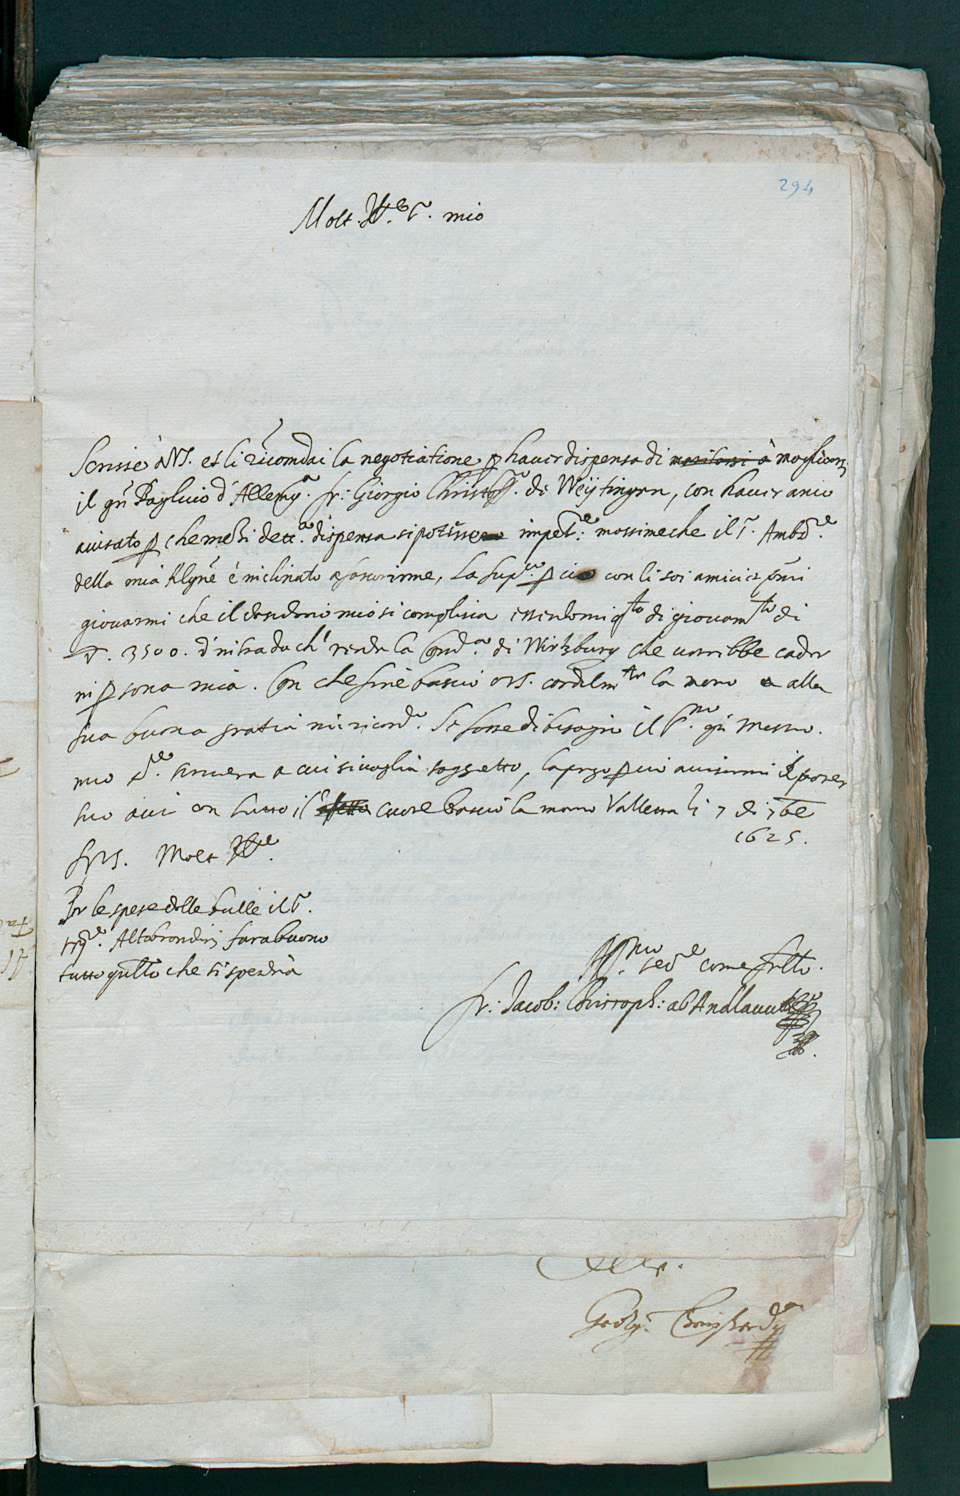 294
Molt Ill.re S.r mio
Scrissi à VS. et li ricomdai la negotiatione p haver dispensa di maritarsi à
il gn Bagliuio d'Allemg.a fr: Giorgio Christoff.o de Weÿtingen, con haver anco
auisato p che mezi dett.a dispensa si potesse impet.e: massime che il S. Amb.re
della mia Algne é inclinato a fauorirme, La sup.co p ciò con li soi amici et pnri
giouarmi che il desiderio mio si complisca essendomi q.to di giouam.to di
3500. d'intrada ch' rende la Comd.a di Wirtzburg che uerribbe cader
in p sona mia. Con che fine bascio a VS. cordialm.te la mano e alla
sua buona gratia mi ricord.o Se fosse di bisogno il S.r gn Messro.
mio S.re scriuera a cui si uoglia soggetto, la prego p ciò auisarmi il parer
suo qui con tutto il cuore bascio la mano Valletta li 7 di 7bre
1625.
D VS. Molt Ill.re
Per le spese delle bulle il S.
Altobrondin sara buono
tutto quello che si spenderà
Aff.mo ser.re come fratello.
fr: Jacob: Christoph: ab Andlauw
Georg: